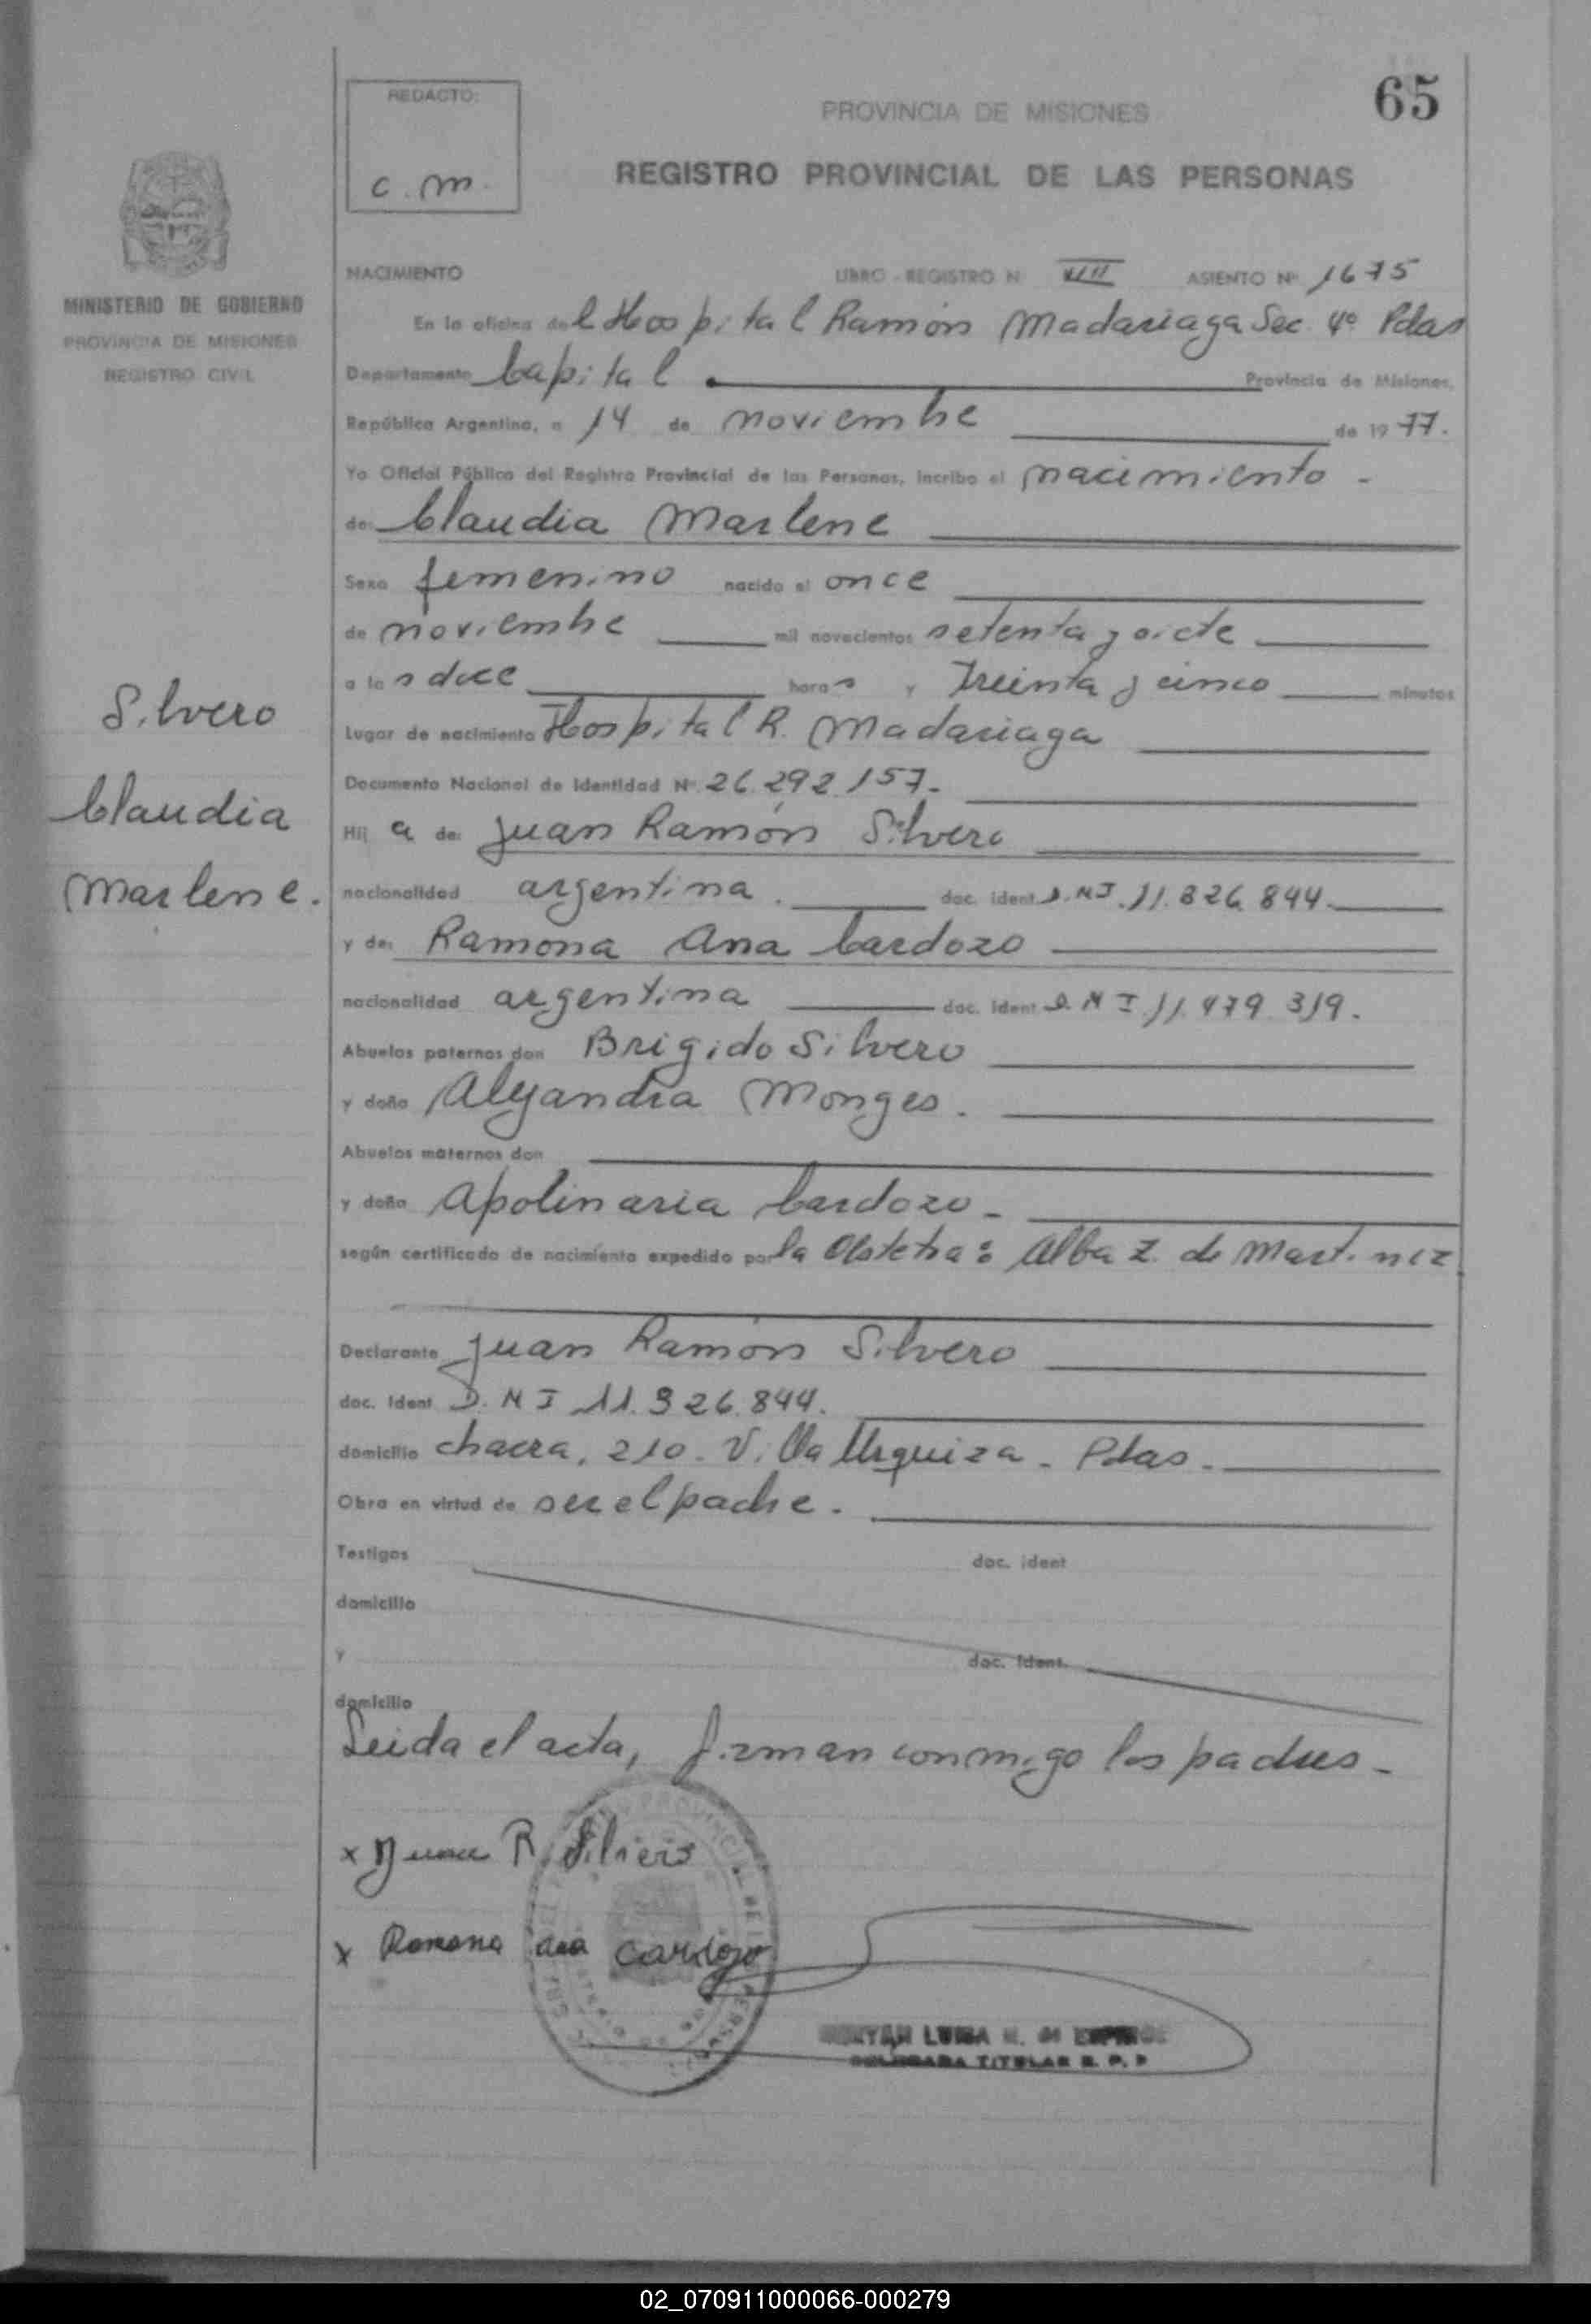 65
REDACTO:
c. m.
PROVINCIA DE MISIONES
REGISTRO PROVINCIAL DE LAS PERSONAS
MINISTERIO DE GOBIERNO
PROVINCIA DE MISIONES
REGISTRO CIVIL
NACIMIENTO LIBRO - REGISTRO N° VIII ASIENTO N° 1675
En la oficina del Hospital Ramón Madariaga Sec. 4° Pdas
Departamento Capital Provincia de Misiones,
República Argentina, a 14 de noviembre de 1977.
Yo Oficial Público del Registro Provincial de las Personas, incribo el nacimiento -
de: Claudia Marlene
Sexo femenino nacido el once
de noviembre mil novecientos setenta y siete
a las doce horas y treinta y cinco minutos
Lugar de nacimiento Hospital R. Madariaga
Documento Nacional de Identidad N° 26.292.157.-
Hija de: Juan Ramón Silvero
nacionalidad argentina. doc. ident. D.N.I. 11.326.844.
y de: Ramona Ana Cardozo
nacionalidad argentina doc. ident. D.N.I. 11.479.319.
Abuelos paternos don Brigido Silvero
y doña Alejandra Monges.
Abuelos maternos don
y doña Apolinaria Cardozo -
según certificado de nacimiento expedido por la Obstetra: Alba Z. de Martinez
Declarante Juan Ramón Silvero
doc. ident. D.N.I 11.326.844.
domicilio chacra, 210. Villa Urquiza - Pdas.
Obra en virtud de ser el padre.
Testigos doc. ident
domicilio
y doc. ident.
domicilio
Leida el acta, firman conmigo los padres -
Silvero
Claudia
Marlene.
x Juan R. Silvero
x Ramona ana cardozo
LUISA
TITULAR R. P. P
02_070911000066-000279